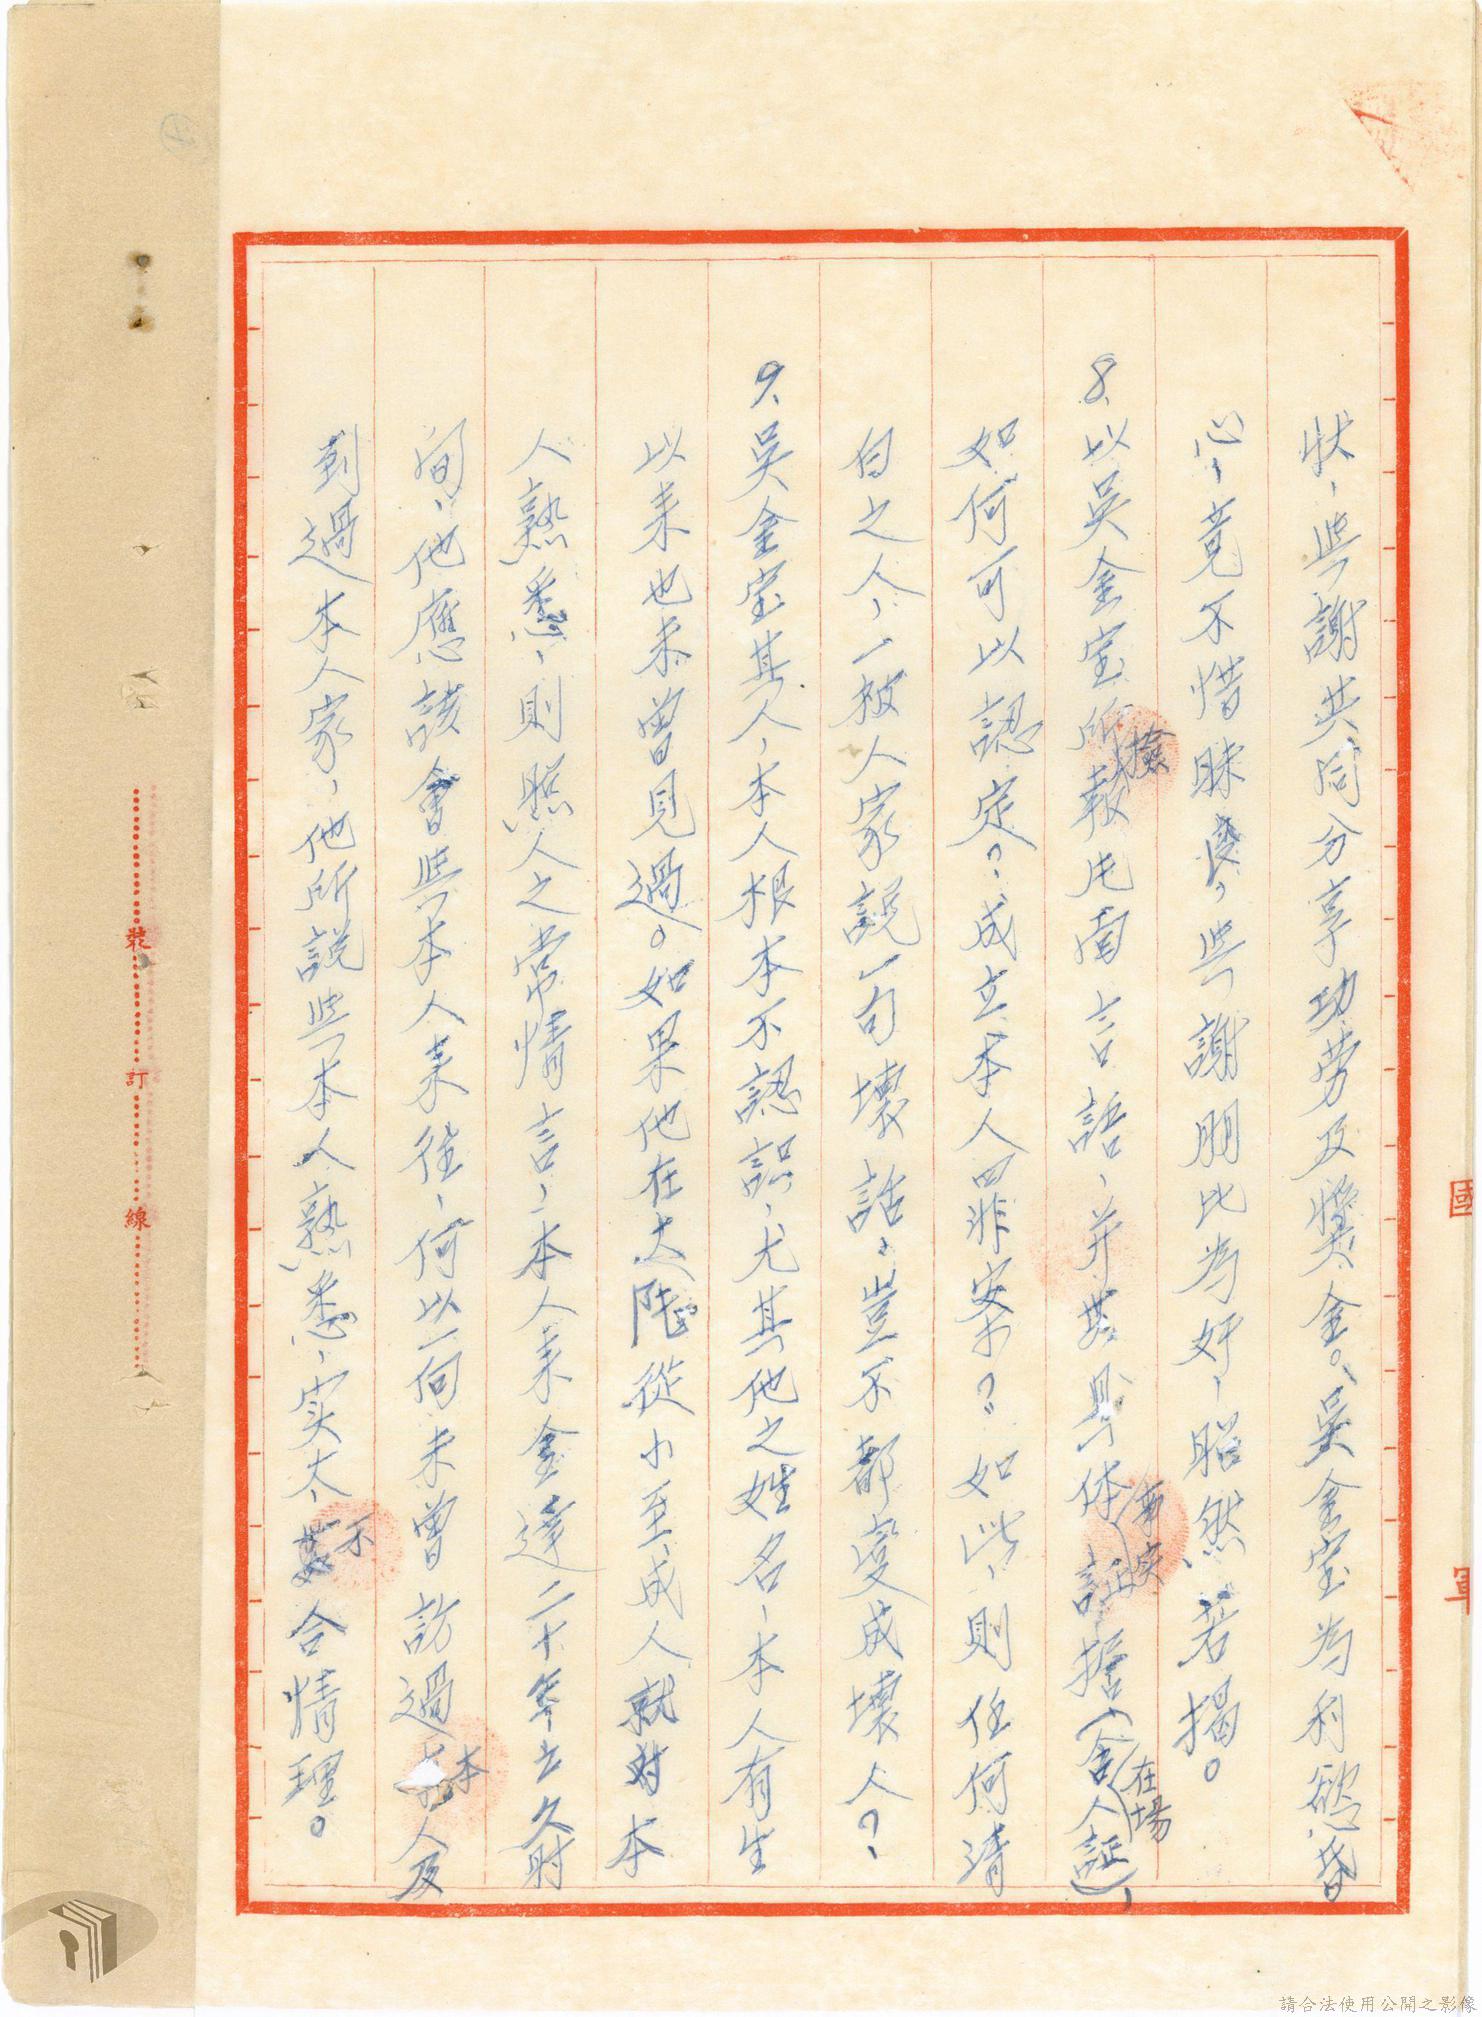 狀，與謝共同分享功勞及獎金。吳金宝為利慾昏
心，竟不惜昧良，與謝朋比為奸，昭然若揭。
8、以吳金宝所檢報片面言語，并無具体事実証據(含在場人証)，
如何可以認定？成立本人罪案？如此，則任何清
白之人，一被人家說一句壞話，豈不都變成壞人？
9、吳金宝其人，本人根本不認識，尤其他之姓名，本人有生
以來也未曾見過。如果他在大陸從小至成人就對本
人熟悉，則照人之常情言，本人來金達二十年之久時
間，他應該會與本人來往，何以一向未曾訪過本人及
到過本人家，他所說與本人熟悉，实太不合情理。
裝
訂
線
國
軍
請合法使用公開之影像